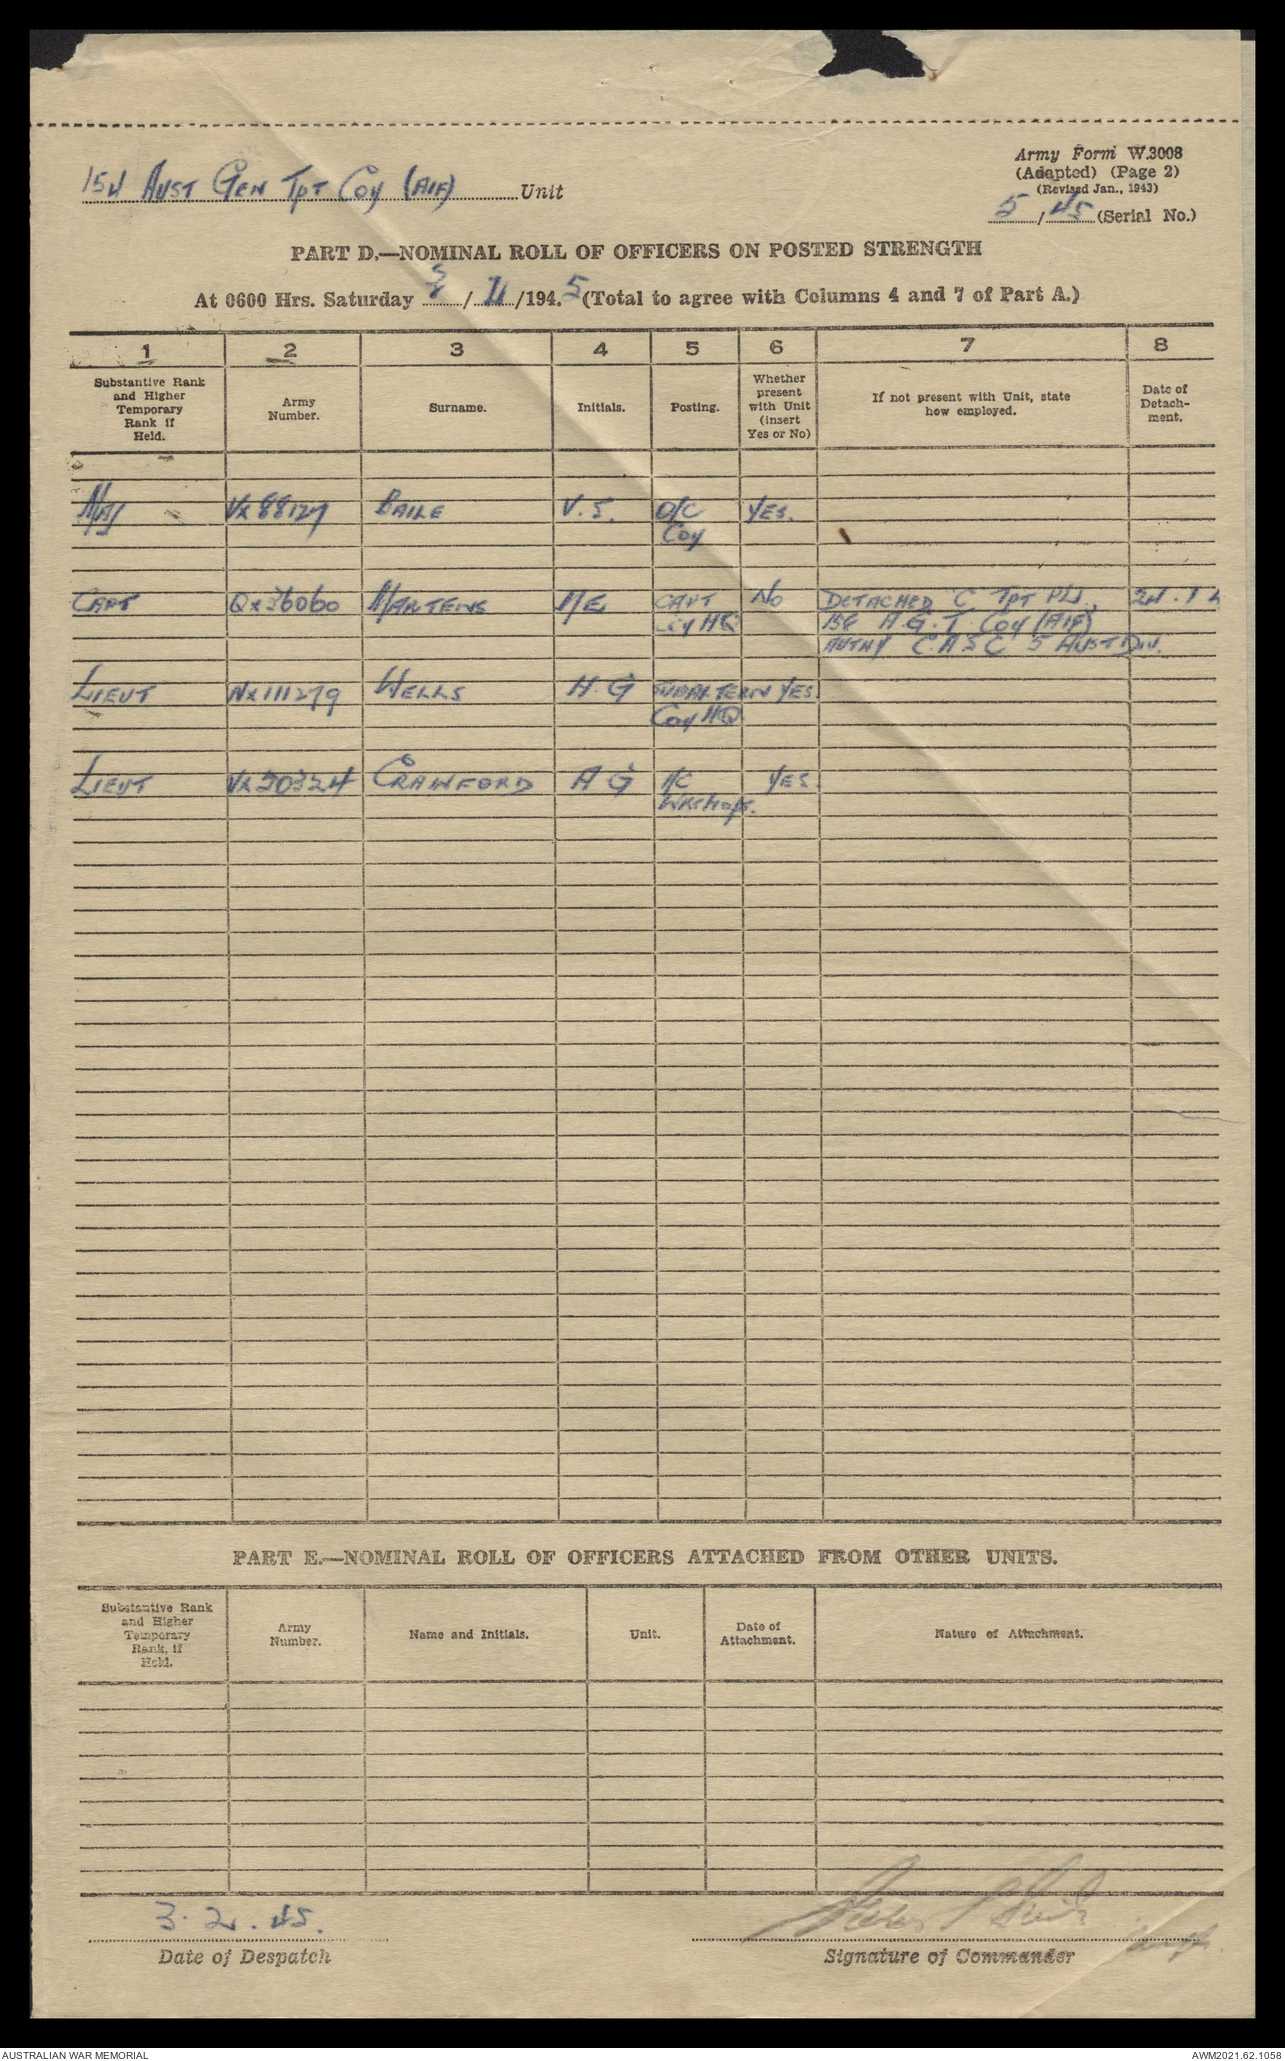 154 Aust Gen Tpt Coy (AIF) Unit
Army Form W.3008
(Adapted) (Page 2)
(Revised Jan., 1943)
5/45 (Serial No.)
PART D.—NOMINAL ROLL OF OFFICERS ON POSTED STRENGTH
At 0600 Hrs. Saturday 3/2/1945 (Total to agree with Columns 4 and 7 of Part A.)
1 2 3 4 5 6 7 8
Substantive Rank and Higher Temporary Rank if Held.
Army Number.
Surname.
Initials.
Posting.
Whether present with Unit (insert Yes or No)
If not present with Unit, state how employed.
Date of Detach-ment.
Maj Vx88127 BAILE V.S. O/C YES.
Coy
CAPT Qx36060 MARTENS ME CAPT No DETACHED C TPT PL,
Coy HQ 158 A.G.T. Coy (AIF)
C.A.S.C 5 AUST DIV.
LIEUT Nx111279 WELLS H.G SUBALTERN YES.
Coy HQ
LIEUT Vx50324 CRAWFORD A G I/C YES.
Wkshops.
PART E.—NOMINAL ROLL OF OFFICERS ATTACHED FROM OTHER UNITS.
Substantive Rank and Higher Temporary Rank, if Held.
Army Number.
Name and Initials.
Unit.
Date of Attachment.
Nature of Attachment.
3.2.45.
Date of Despatch
Signature of Commander
AUSTRALIAN WAR MEMORIAL
AWM2021.62.1058